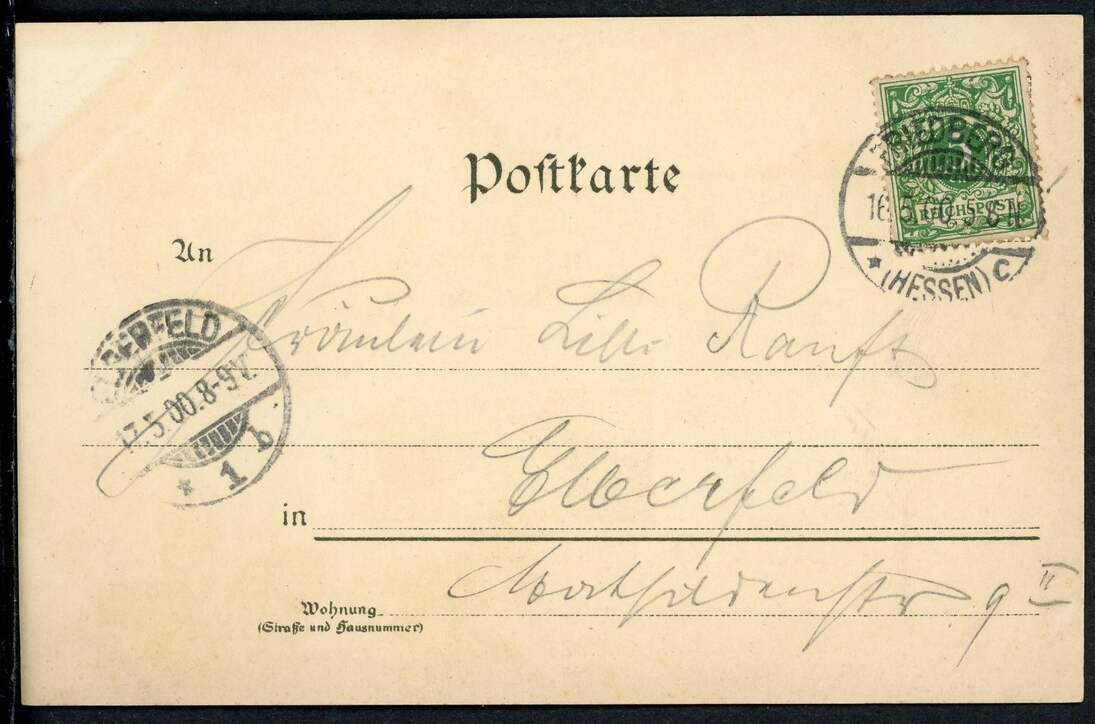 Postkarte
5
REICHSPOST
FRIEDBERG
16.5.00.
(HESSEN) C
An
Fräulein Lilli Ranft
ELBERFELD
17.5.00.8-9V.
* 1 b
Elberfeld
in
Mathildenstr 9 II
Wohnung
(Straße und Hausnummer)